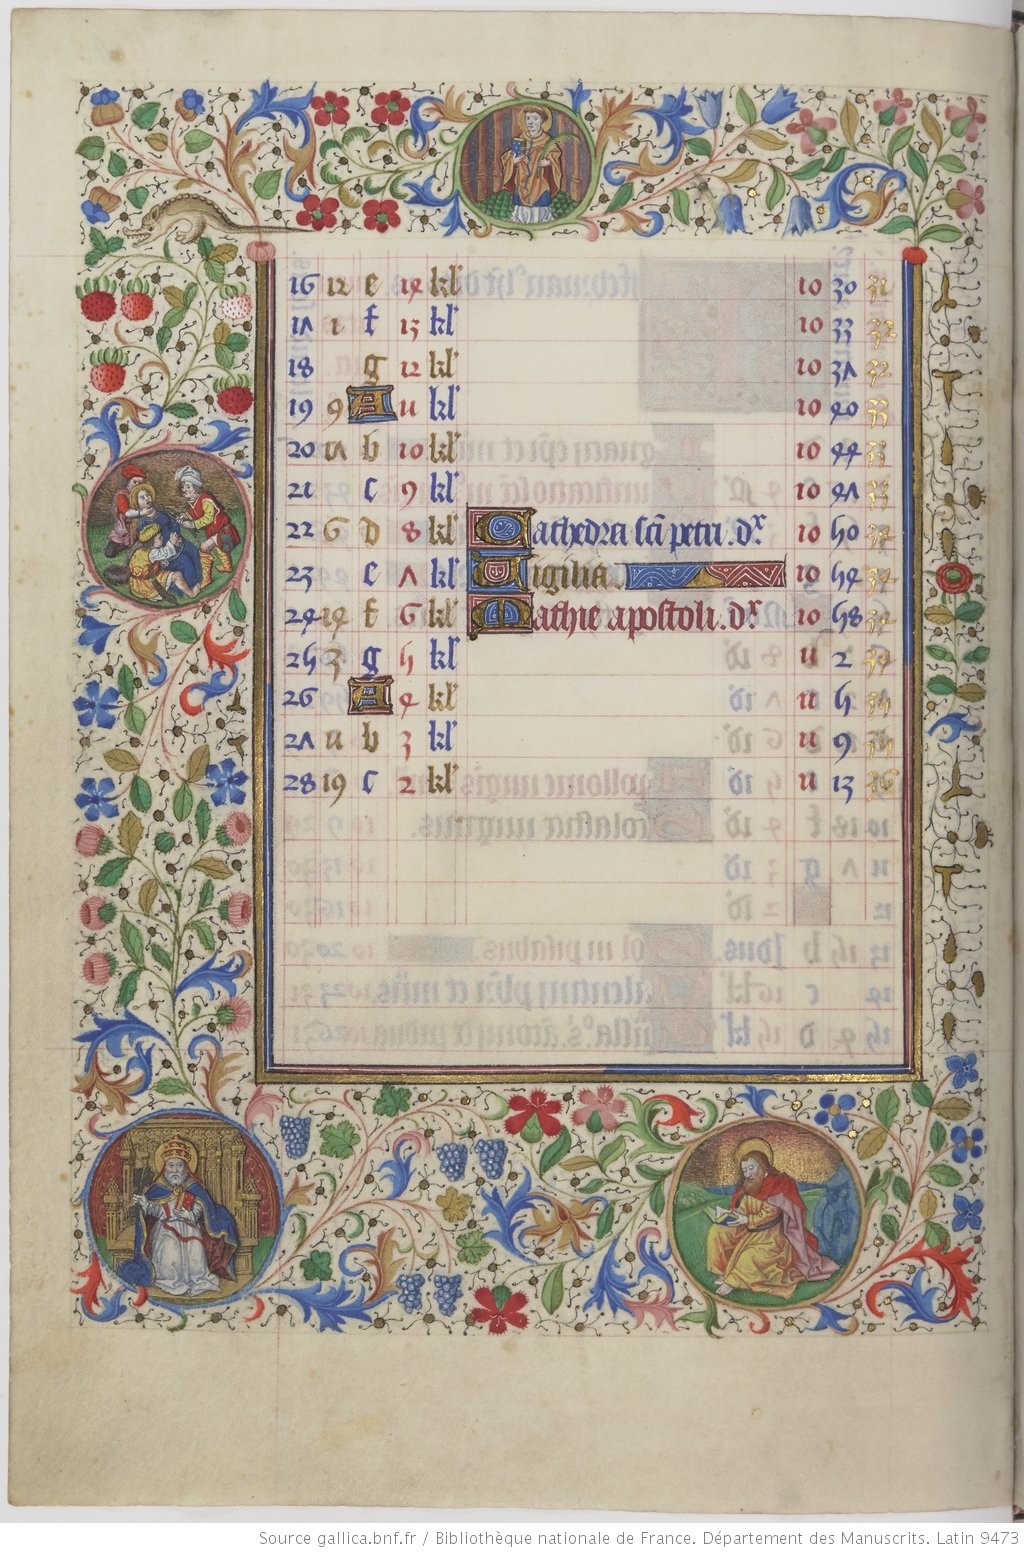 16 12 e 14 kl' 10 30 31
17 1 f 13 kl' 10 33 32
18 g 12 kl' 10 37 32
19 9 A 11 kl' 10 40 33
20 17 b 10 kl' 10 44 33
21 c 9 kl' 10 47 33
22 6 D 8 kl' Cathedra sci petri. dx 10 50
23 e 7 kl' Vigilia. 10 54 34
24 14 f 6 kl' Mathie apostoli. dx 10 58 34
25 3 g 5 kl' 11 2 34
26 A 4 kl' 11 5
27 11 b 3 kl' 11 9
28 19 c 2 kl' 11 13
Source gallica.bnf.fr / Bibliothèque nationale de France. Département des Manuscrits. Latin 9473